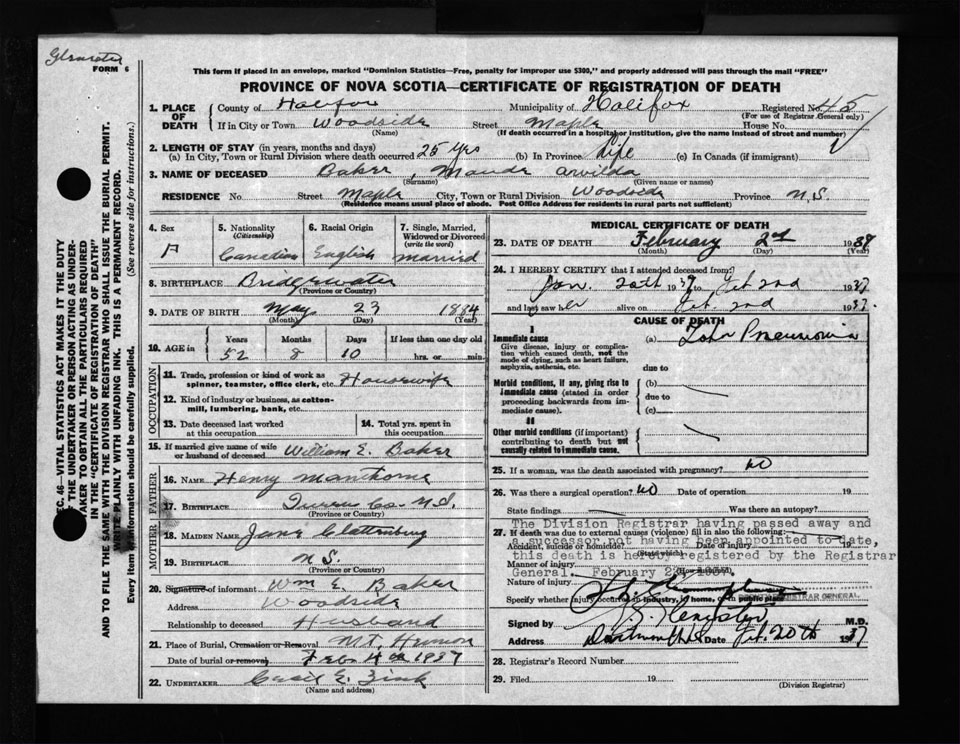 FORM 6
This form if placed in an envelope, marked "Dominion Statistics—Free, penalty for improper use $300," and properly addressed will pass through the mail "FREE"
PROVINCE OF NOVA SCOTIA—CERTIFICATE OF REGISTRATION OF DEATH
1. PLACE OF DEATH County of Halifax Municipality of Halifax Registered No. 45
(For use of Registrar General only)
If in City or Town Woodside Street Maple House No.
(Name) (If death occurred in a hospital or institution, give the name instead of street and number)
2. LENGTH OF STAY (in years, months and days)
(a) In City, Town or Rural Division where death occurred 25 yrs (b) In Province Life (c) In Canada (if immigrant)
3. NAME OF DECEASED Baker, Maude Arvilda
(Surname) (Given name or names)
RESIDENCE No. Street Maple City, Town or Rural Division Woodside Province N.S.
(Residence means usual place of abode. Post Office Address for residents in rural parts not sufficient)
4. Sex 5. Nationality (Citizenship) 6. Racial Origin 7. Single, Married, Widowed or Divorced (write the word)
F Canadian English Married
8. BIRTHPLACE Bridgewater
(Province or Country)
9. DATE OF BIRTH May 23 1884
(Month) (Day) (Year)
10. AGE in Years Months Days If less than one day old
52 8 10 hrs. or min.
OCCUPATION
11. Trade, profession or kind of work as spinner, teamster, office clerk, etc. Housewife
12. Kind of industry or business, as cotton-mill, lumbering, bank, etc.
13. Date deceased last worked at this occupation 14. Total yrs. spent in this occupation
15. If married give name of wife or husband of deceased William E. Baker
FATHER
16. NAME Henry Manthorne
17. BIRTHPLACE Queens Co. N.S.
(Province or Country)
MOTHER
18. MAIDEN NAME Jane Clattenburg
19. BIRTHPLACE N.S.
(Province or Country)
20. Signature of informant Wm E. Baker
Address Woodside
Relationship to deceased Husband
21. Place of Burial, Cremation or Removal Mt. Hermon
Date of burial or removal Feb. 4th 1937
22. UNDERTAKER Cecil E. Zink
(Name and address)
MEDICAL CERTIFICATE OF DEATH
23. DATE OF DEATH February 2nd 1937
(Month) (Day) (Year)
24. I HEREBY CERTIFY that I attended deceased from
Jan. 20th 1937 to Feb 2nd 1937
and last saw her alive on Feb. 2nd 1937.
CAUSE OF DEATH
I
Immediate cause
Give disease, injury or complication which caused death, not the mode of dying, such as heart failure, asphyxia, asthenia, etc.
(a) Lobar Pneumonia
due to
Morbid conditions, if any, giving rise to immediate cause (stated in order proceeding backwards from immediate cause).
(b)
due to
(c)
II
Other morbid conditions (if important) contributing to death but not causally related to immediate cause.
25. If a woman, was the death associated with pregnancy? no
26. Was there a surgical operation? no Date of operation 19
State findings Was there an autopsy?
The Division Registrar having passed away and
27. If death was due to external causes (violence) fill in also the following:
a successor not having been appointed to date,
Accident, suicide or homicide? Date of injury 19
this death is hereby registered by the Registrar
Manner of injury
General. February 22, 1937.
Nature of injury
Specify whether injury occurred in industry, in home, or in public place
REGISTRAR GENERAL
Signed by M.D.
Address Dartmouth N.S. Date Feb. 20th 1937
28. Registrar's Record Number
29. Filed 19
(Division Registrar)
SEC. 46—VITAL STATISTICS ACT MAKES IT THE DUTY
OF THE UNDERTAKER OR PERSON ACTING AS UNDER-
TAKER TO OBTAIN ALL THE PARTICULARS REQUIRED
IN THE "CERTIFICATE OF REGISTRATION OF DEATH"
AND TO FILE THE SAME WITH THE DIVISION REGISTRAR WHO SHALL ISSUE THE BURIAL PERMIT.
WRITE PLAINLY WITH UNFADING INK. THIS IS A PERMANENT RECORD.
Every item of information should be carefully supplied. (See reverse side for instructions.)